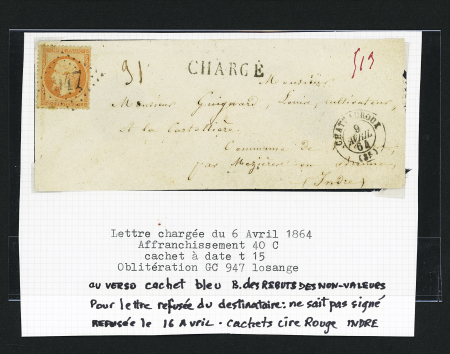 947
91
CHARGÉ
513
Monsieur
Monsieur Guignard, Louis, cultivateur,
A la
Commune de
par Mezières en
(Indre)
CHATEAUROUX
9
AVRIL
64
(35)
Lettre chargée du 6 Avril 1864
Affranchissement 40 C
cachet à date t 15
Oblitération GC 947 losange
au verso cachet bleu B. des REBUTS DES NON-VALEURS
Pour lettre refusée du destinataire: ne sait pas signé
REFUSÉE le 16 Avril - cachets cire Rouge INDRE